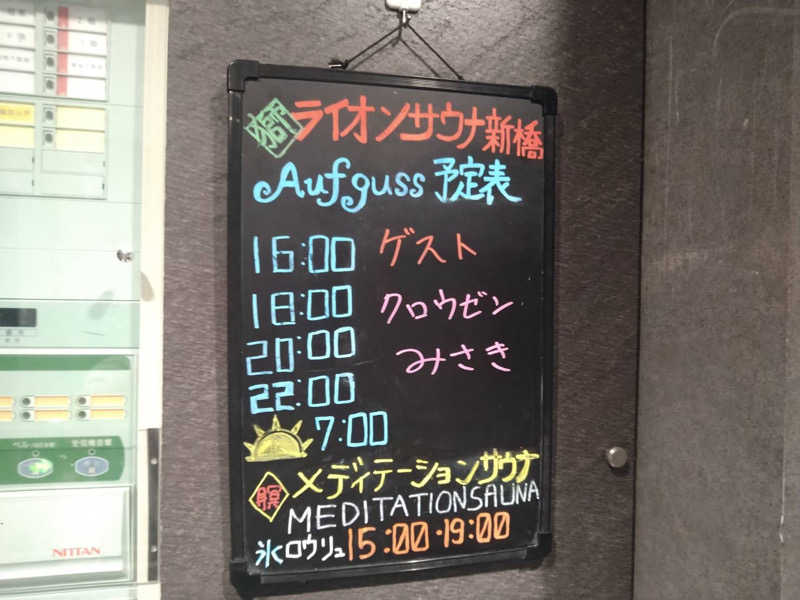 獅 ライオンサウナ新橋
Aufguss 予定表
16:00 ゲスト
18:00 クロウゼン
20:00 みさき
22:00
7:00
瞑 メディテーションサウナ
MEDITATIONSAUNA
氷ロウリュ 15:00・19:00
NITTAN